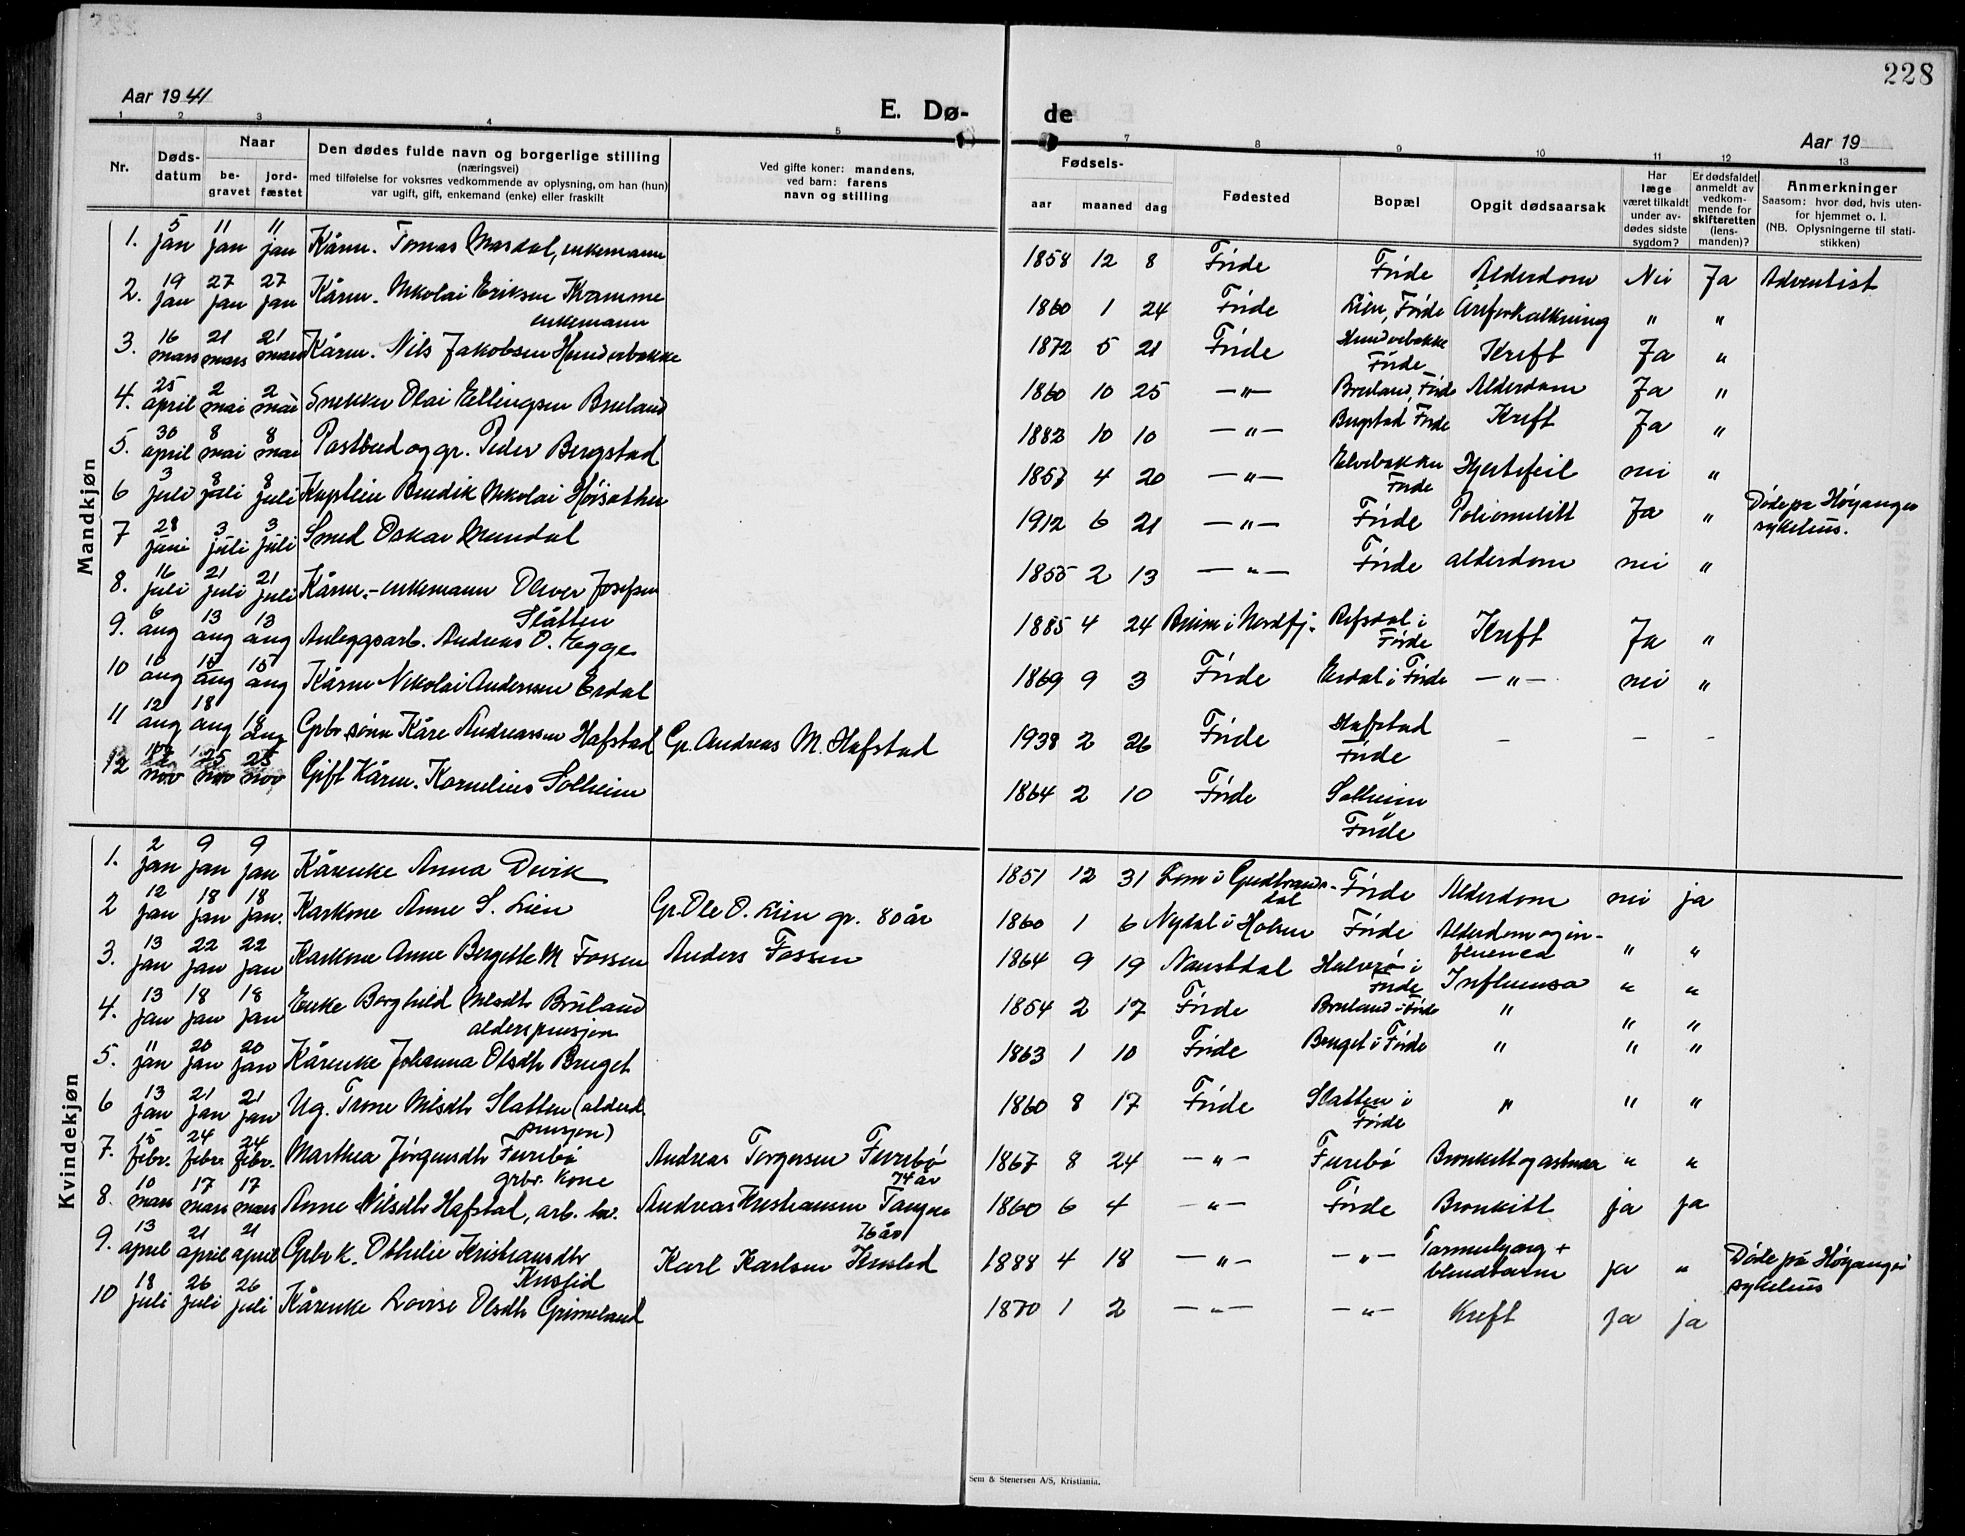 228
Aar 1941
E. Dø-
de
Aar 19
1 2 3 4 5 7 8 9 10 11 12 13
Nr.
Døds-
datum
Naar
be-
gravet
jord-
fæstet
Den dødes fulde navn og borgerlige stilling
(næringsvei)
med tilføielse for voksnes vedkommende av oplysning, om han (hun)
var ugift, gift, enkemand (enke) eller fraskilt
Ved gifte koner: mandens,
ved barn: farens
navn og stilling
Fødsels-
aar maaned dag
Fødested
Bopæl
Opgit dødsaarsak
Har
læge
været tilkaldt
under av-
dødes sidste
sygdom?
Er dødsfaldet
anmeldt av
vedkom-
mende for
skifteretten
(lens-
manden)?
Anmerkninger
Saasom: hvor død, hvis uten-
for hjemmet o. l.
(NB. Oplysningerne til stati-
stikken)
Mandkjøn
1. 5 jan 11 jan 11 jan Kårm. Tomas Mardal, enkemann 1858 12 8 Førde Førde Alderdom Nei Ja Adventist
2. 19 jan 27 jan 27 jan Kårm. Nikolai Eriksen Kramme
enkemann 1860 1 24 Førde Lien, Førde Åreforkalkning " "
3. 16 mars 21 mars 21 mars Kårm. Nils Jakobsen Hundvebakke 1872 5 21 Førde Hundvebakke
Førde Kreft Ja "
4. 25 april 2 mai 2 mai Snekker Olai Ellingsen Bruland 1860 10 25 — " — Bruland, Førde Alderdom Ja "
5. 30 april 8 mai 8 mai Postbud og gr. Peder Bergstad 1882 10 10 — " — Bergstad Førde Kreft Ja "
6 3 juli 8 juli 8 juli Kaptein Bendik Nikolai 1857 4 20 — " — Elvebakken
Førde Hjertefeil nei "
7 28 juni 3 juli 3 juli Smed Oskar Mundal 1912 6 21 — " — Førde Poliomelitt Ja " Døde på Høyanger
sykehus.
8. 16 juli 21 juli 21 juli Kårm.- enkemann Oliver Josefsen
Slåtten 1855 2 13 — " — Førde alderdom nei "
9. 6 aug 13 aug 13 aug Anleggsarb. Andreas O. Egge 1885 4 24 Breim i Nordfj. Refsdal i
Førde Kreft Ja "
10 10 aug 15 aug 15 aug Kårm Nikolai Anderssen Erdal 1869 9 3 Førde Erdal i Førde — " — nei "
11 12 aug 18 aug 18 aug Grbr. sønn Kåre Andreassen Hafstad Gr. Andreas M. Hafstad 1938 2 26 Førde Hafstad
Førde — — —
12 nov 25 nov 25 nov Gift Kårm. Kornelius Solheim 1864 2 10 Førde Solheim
Førde
Kvindekjøn
1. 2 jan 9 jan 9 jan Kårenke Anna Devik 1851 12 31 Lom i Gudbrands-
dal Førde Alderdom nei ja
2 12 jan 18 jan 18 jan. Karkone Anne S. Lien Gr. Ole O. Lien gr. 80 år 1860 1 6 Nydal i Holsen Førde Alderdom og in-
fluenca " "
3. 13 jan 22 jan 22 jan Karkone Anne Bergette M Fossen Anders Fossen 1864 9 19 Naustdal Halvrø i
Førde Influensa " "
4. 13 jan 18 jan 18 jan Enke Borghild Nilsdtr Bruland
alderspensjon 1854 2 17 Førde Bruland i Førde " " "
5. 11 jan 20 jan 20 jan Kårenke Johanna Olsdtr Bruget 1863 1 10 Førde Bruget i Førde " " "
6 13 jan 21 jan 21 jan Ug. Trone Nilsdtr Slatten (alderd
pensjon) 1860 8 17 Førde Slatten i
Førde " " "
7. 15 febr. 24 febr. 24 febr. Marthea Jørgensdtr Furebø
grbr. kone Andreas Torgersen Furebø
74 år 1867 8 24 — " — Furebø Bronkitt og astma " "
8. 10 mars 17 mars 17 mars Anne Nilsdtr Hafstad, arb. Andreas Kristiansen
76 år 1860 6 4 — " — Førde Bronkitt ja ja
9. 13 april 21 april 21 april Grbr k. Othilie Kristiansdtr
Kusslid Karl Karlsen 1888 4 18 — " — — " — Tarmslyng +
blindtarm ja " Døde på Høyanger
sykehus
10 18 juli 26 juli 26 juli Kårenke Lovise Olsdtr Grimeland 1870 1 2 — " — — " — Kreft ja ja
Sem & Stenersen A/S, Kristiania.